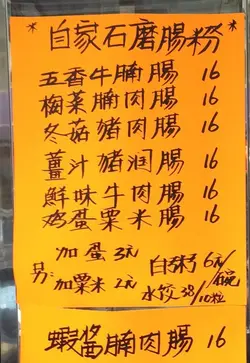 * 自家石磨腸粉 *
五香牛腩腸 16
梅菜腩肉腸 16
冬菇豬肉腸 16
薑汁豬润腸 16
鮮味牛肉腸 16
鸡蛋粟米腸 16
加蛋 3元
另: 加粟米 2元
白粥 6元/碗
水饺 38/10粒
蝦醬腩肉腸 16